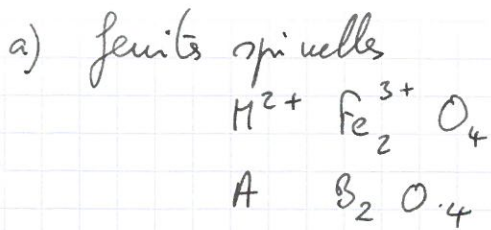 a) ferrites spinelles
M²⁺ Fe₂³⁺ O₄
A B₂ O.₄